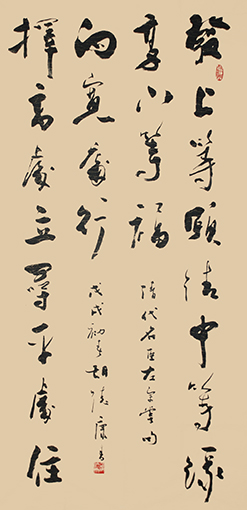 發上等願結中等緣
享下等福
清代名臣左宗棠句
擇高處立尋平處住
向寬處行
戊戌初春胡康書